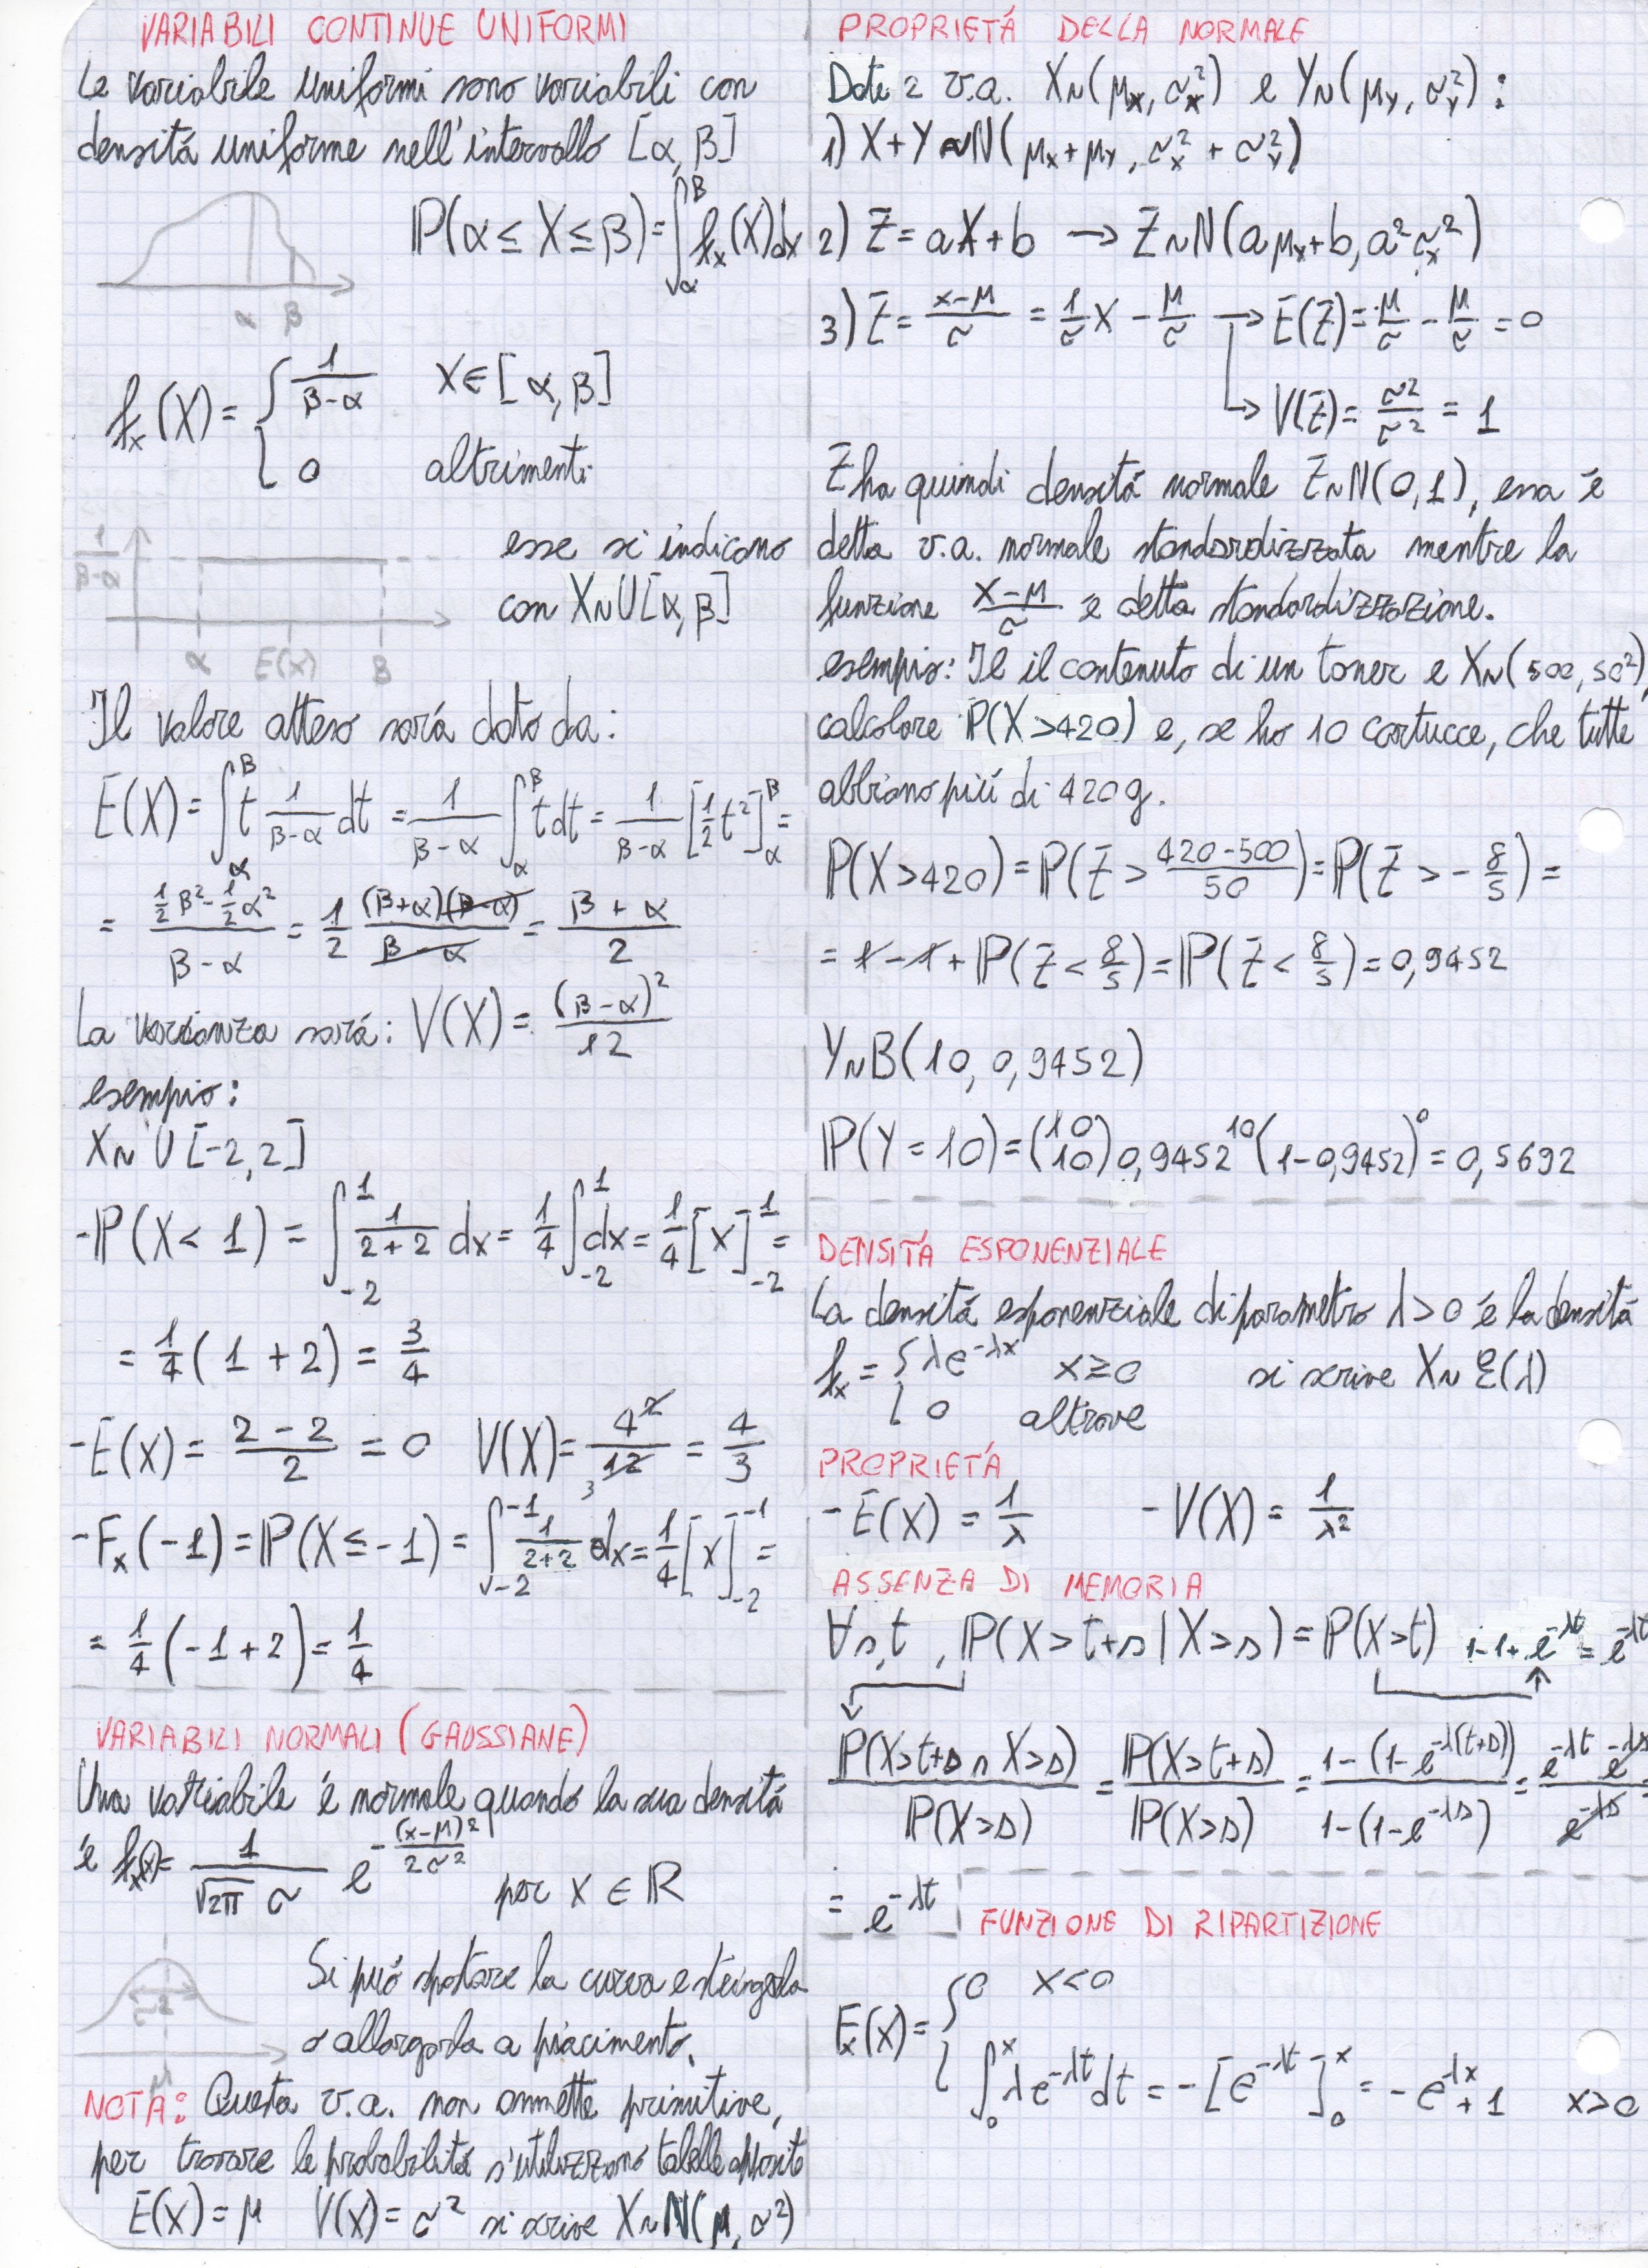 VARIABILI CONTINUE UNIFORMI
Le variabile uniformi sono variabili con
densitá uniforme nell'intervallo [α, β]
P(α ≤ X ≤ β) = ∫_α^β fx(X)dx
α β
fx(X) = { 1/(β-α) X ∈ [α, β]
0 altrimenti
1/(β-α)
esse si indicano
con X~U[α, β]
α E(X) β
Il valore atteso sará dato da:
E(X) = ∫_α^β t 1/(β-α) dt = 1/(β-α) ∫_α^β t dt = 1/(β-α) [1/2 t²]_α^β =
= (1/2 β² - 1/2 α²)/(β-α) = 1/2 (β+α)(β-α)/(β-α) = (β+α)/2
La varianza sará: V(X) = (β-α)²/12
esempio:
X~U[-2,2]
-P(X < 1) = ∫_-2^1 1/(2+2) dx = 1/4 ∫_-2^1 dx = 1/4 [x]_-2^1 =
= 1/4 (1+2) = 3/4
-E(X) = (2-2)/2 = 0 V(X) = 4²/12 = 4/3
3
-Fx(-1) = P(X ≤ -1) = ∫_-2^-1 1/(2+2) dx = 1/4 [x]_-2^-1 =
= 1/4 (-1+2) = 1/4
VARIABILI NORMALI (GAUSSIANE)
Una variabile é normale quando la sua densitá
é fx(x) = 1/(√2π σ) e^-(x-μ)²/2σ² per x ∈ R
Si puó spostare la curva e stringerla
o allargarla a piacimento.
μ
NOTA: Questa v.a. non ammette primitive,
per trovare le probabilitá s'utilizzano tabelle apposite
E(X) = μ V(X) = σ² si scrive X~N(μ, σ²)
PROPRIETÁ DELLA NORMALE
Date 2 v.a. X~(μx, σx²) e Y~(μy, σy²):
1) X+Y ~N(μx+μy, σx² + σy²)
2) Z = aX+b → Z~N(aμx+b, a²σx²)
3) Z = (x-μ)/σ = 1/σ X - μ/σ → E(Z) = μ/σ - μ/σ = 0
→ V(Z) = σ²/σ² = 1
Z ha quindi densitá normale Z~N(0,1), essa é
detta v.a. normale standardizzata mentre la
funzione (X-μ)/σ é detta standardizzazione.
esempio: Il il contenuto di un toner e X~(500, 50²),
calcolare P(X>420) e, se ho 10 cartucce, che tutte
abbiano piú di 420g.
P(X>420) = P(Z > (420-500)/50) = P(Z > -8/5) =
= 1-1+P(Z < 8/5) = P(Z < 8/5) = 0,9452
Y~B(10, 0,9452)
P(Y=10) = (10 10) 0,9452^10 (1-0,9452)^0 = 0,5692
DENSITÁ ESPONENZIALE
La densitá esponenziale di parametro λ>0 é la densitá
fx = { λe^-λx x≥0 si scrive X~E(λ)
0 altrove
PROPRIETÁ
-E(X) = 1/λ -V(X) = 1/λ²
ASSENZA DI MEMORIA
∀s,t , P(X>t+s | X>s) = P(X>t) 1-1+e^-λt = e^-λt
P(X>t+s ∩ X>s)/P(X>s) = P(X>t+s)/P(X>s) = 1-(1-e^-λ(t+s))/1-(1-e^-λs) = e^-λt e^-λs/e^-λs =
= e^-λt
FUNZIONE DI RIPARTIZIONE
Fx(x) = { 0 x<0
∫_0^x λe^-λt dt = -[e^-λt]_0^x = -e^-λx + 1 x>0